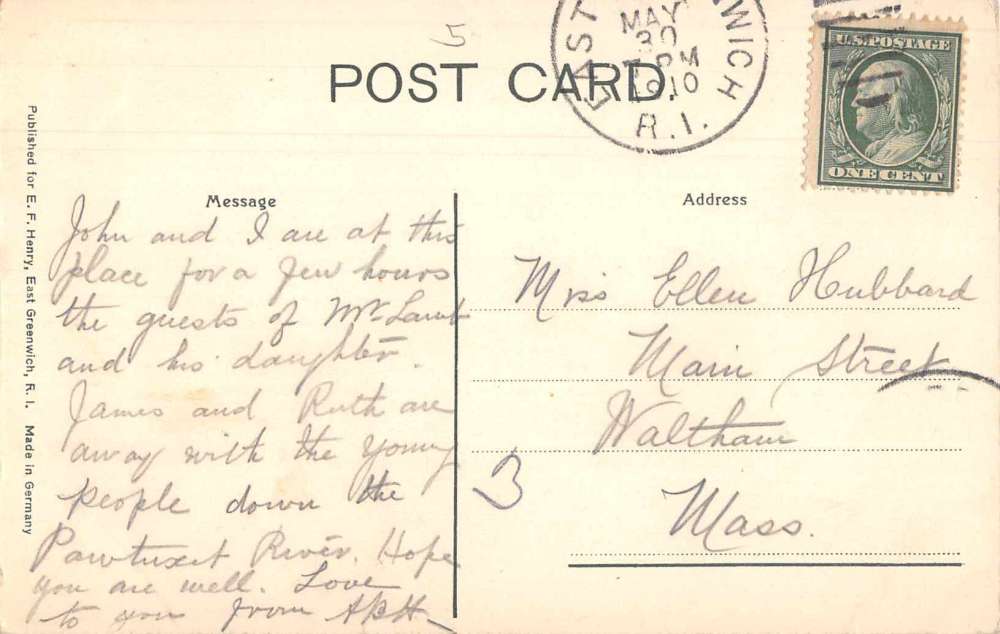 5
POST CARD.
EAST WICH
MAY
30
PM
1910
R.I.
U.S. POSTAGE
ONE CENT
Published for E. F. Henry, East Greenwich, R. I. Made in Germany
Message
John and I are at this
place for a few hours
the guests of Mr Lamb
and his daughter.
James and Ruth are
away with the young
people down the
Pawtuxet River. Hope
you are well. Love
to you from ABH
Address
Miss Ellen Hubbard
Main Street
Waltham
Mass.
3